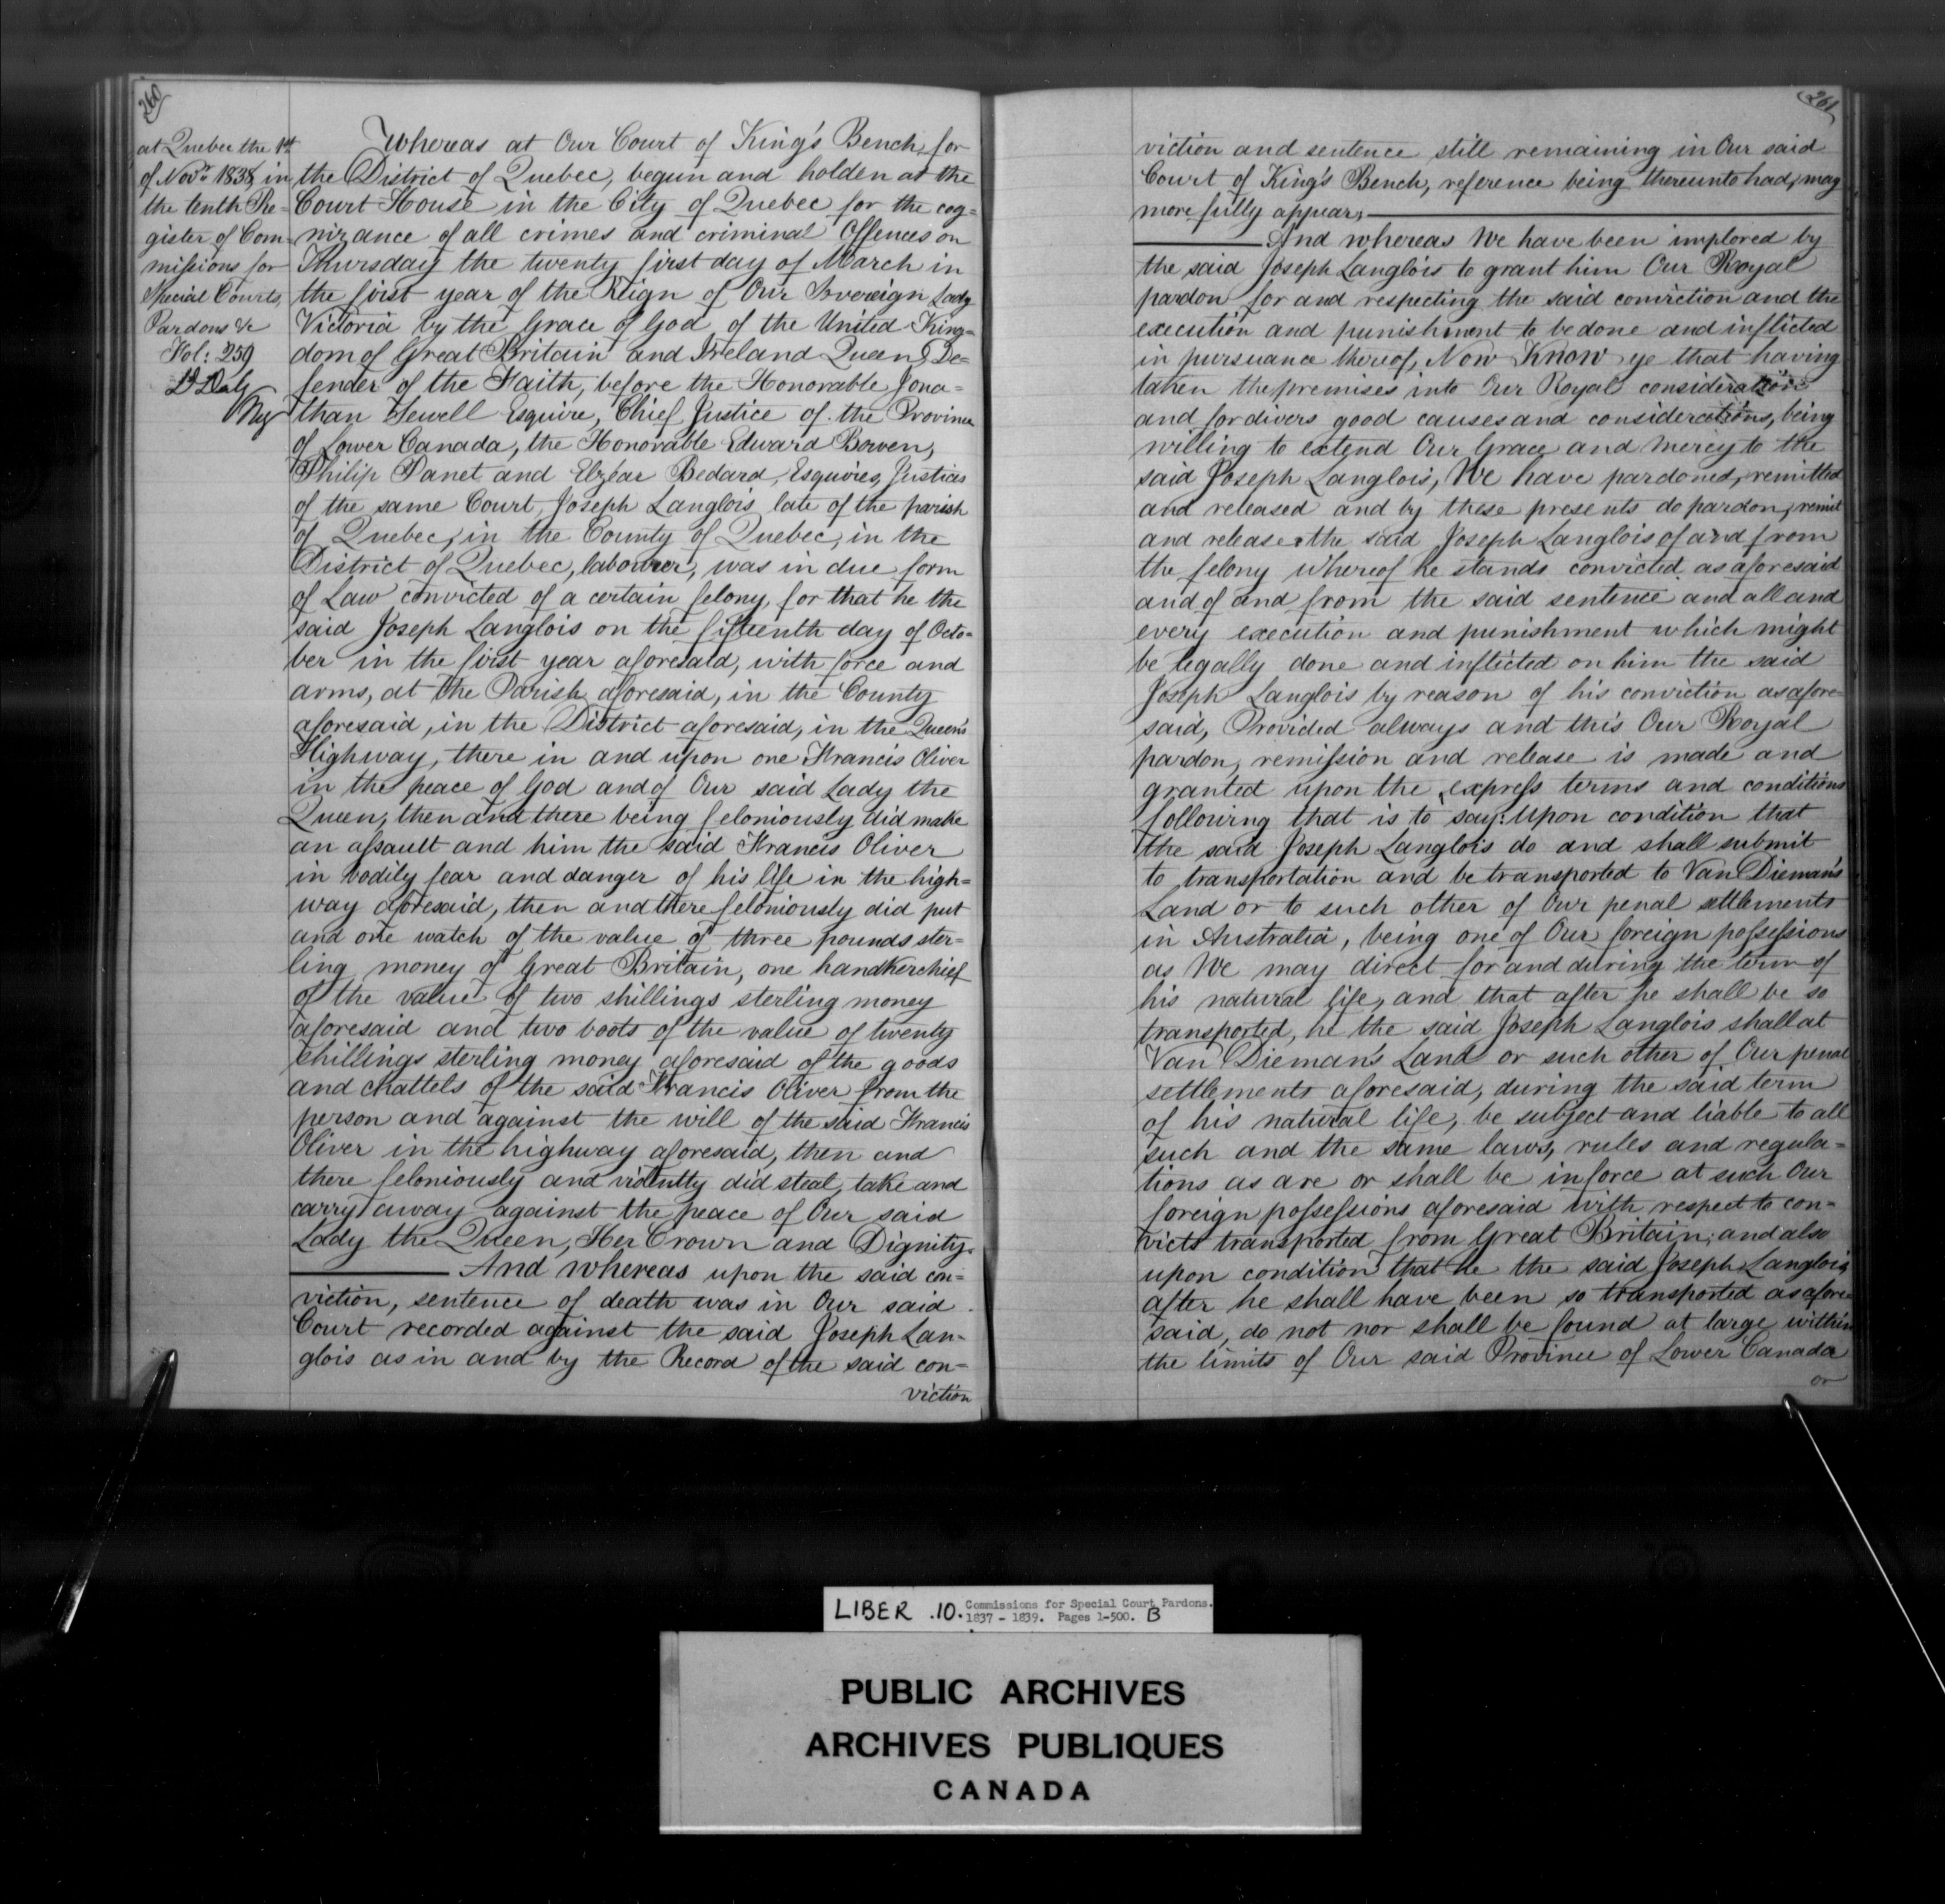 260
at Quebec the 1st
of Novr. 1838, in
the tenth Re-
gister of Com-
missions for
Special Courts,
Pardons &c
Fol: 259
D Daly
Whereas at Our Court of King's Bench, for
the District of Quebec, begun and holden at the
Court House in the City of Quebec for the cog=
nizance of all crimes and criminal Offences on
Thursday the twenty first day of March in
the first year of the Reign of Our Sovereign Lady
Victoria by the Grace of God of the United King=
dom of Great Britain and Ireland Queen, De=
fender of the Faith, before the Honorable Jona=
than Sewell Esquire, Chief Justice of the Province
of Lower Canada, the Honorable Edward Bowen,
Philip Panet and Elzéar Bedard, Esquires, Justices
of the same Court, Joseph Langlois late of the parish
of Quebec, in the County of Quebec, in the
District of Quebec, labourer, was in due form
of Law convicted of a certain felony, for that he the
said Joseph Langlois on the fifteenth day of Octo=
ber in the first year aforesaid, with force and
arms, at the Parish aforesaid, in the County
aforesaid, in the District aforesaid, in the Queen's
Highway, there in and upon one Francis Oliver
in the peace of God and of Our said Lady the
Queen, then and there being feloniously did make
an assault and him the said Francis Oliver
in bodily fear and danger of his life in the high=
way aforesaid, then and there feloniously did put
and one watch of the value of three pounds ster=
ling money of Great Britain, one handkerchief
of the value of two shillings sterling money
aforesaid and two boots of the value of twenty
shillings sterling money aforesaid of the goods
and chattels of the said Francis Oliver from the
person and against the will of the said Francis
Oliver in the highway aforesaid, then and
there feloniously and violently did steal, take and
carry away against the peace of Our said
Lady the Queen, Her Crown and Dignity.
And whereas upon the said con=
viction, sentence of death was in Our said
Court recorded against the said Joseph Lan-
glois as in and by the Record of the said con=
viction
261
viction and sentence still remaining in Our said
Court of King's Bench, reference being thereunto had, may
more fully appear,
And whereas We have been implored by
the said Joseph Langlois to grant him Our Royal
pardon for and respecting the said conviction and the
execution and punishment to be done and inflicted
in pursuance thereof, Now Know ye that having
taken the premises into Our Royal consideration
and for divers good causes and considerations, being
willing to extend Our Grace and mercy to the
said Joseph Langlois, We have pardoned, remitted
and released and by these presents do pardon, remit
and release the said Joseph Langlois of and from
the felony whereof he stands convicted as aforesaid
and of and from the said sentence and all and
every execution and punishment which might
be legally done and inflicted on him the said
Joseph Langlois by reason of his conviction as afore=
said, Provided always and this Our Royal
pardon, remission and release is made and
granted upon the express terms and conditions
following that is to say: Upon condition that
the said Joseph Langlois do and shall submit
to transportation and be transported to Van Dieman's
Land or to such other of Our penal settlements
in Australia, being one of Our foreign possessions
as We may direct for and during the term of
his natural life, and that after he shall be so
transported, he the said Joseph Langlois shall at
Van Dieman's Land or such other of Our penal
settlements aforesaid, during the said term
of his natural life, be subject and liable to all
such and the same laws, rules and regula=
tions as are or shall be in force at such Our
foreign possessions aforesaid with respect to con=
victs transported from Great Britain, and also
upon condition that he the said Joseph Langlois,
after he shall have been so transported as afore=
said, do not nor shall be found at large within
the limits of Our said Province of Lower Canada
or
LIBER .10. Commissions for Special Court Pardons.
1837 - 1839. Pages 1-500. B
PUBLIC ARCHIVES
ARCHIVES PUBLIQUES
CANADA